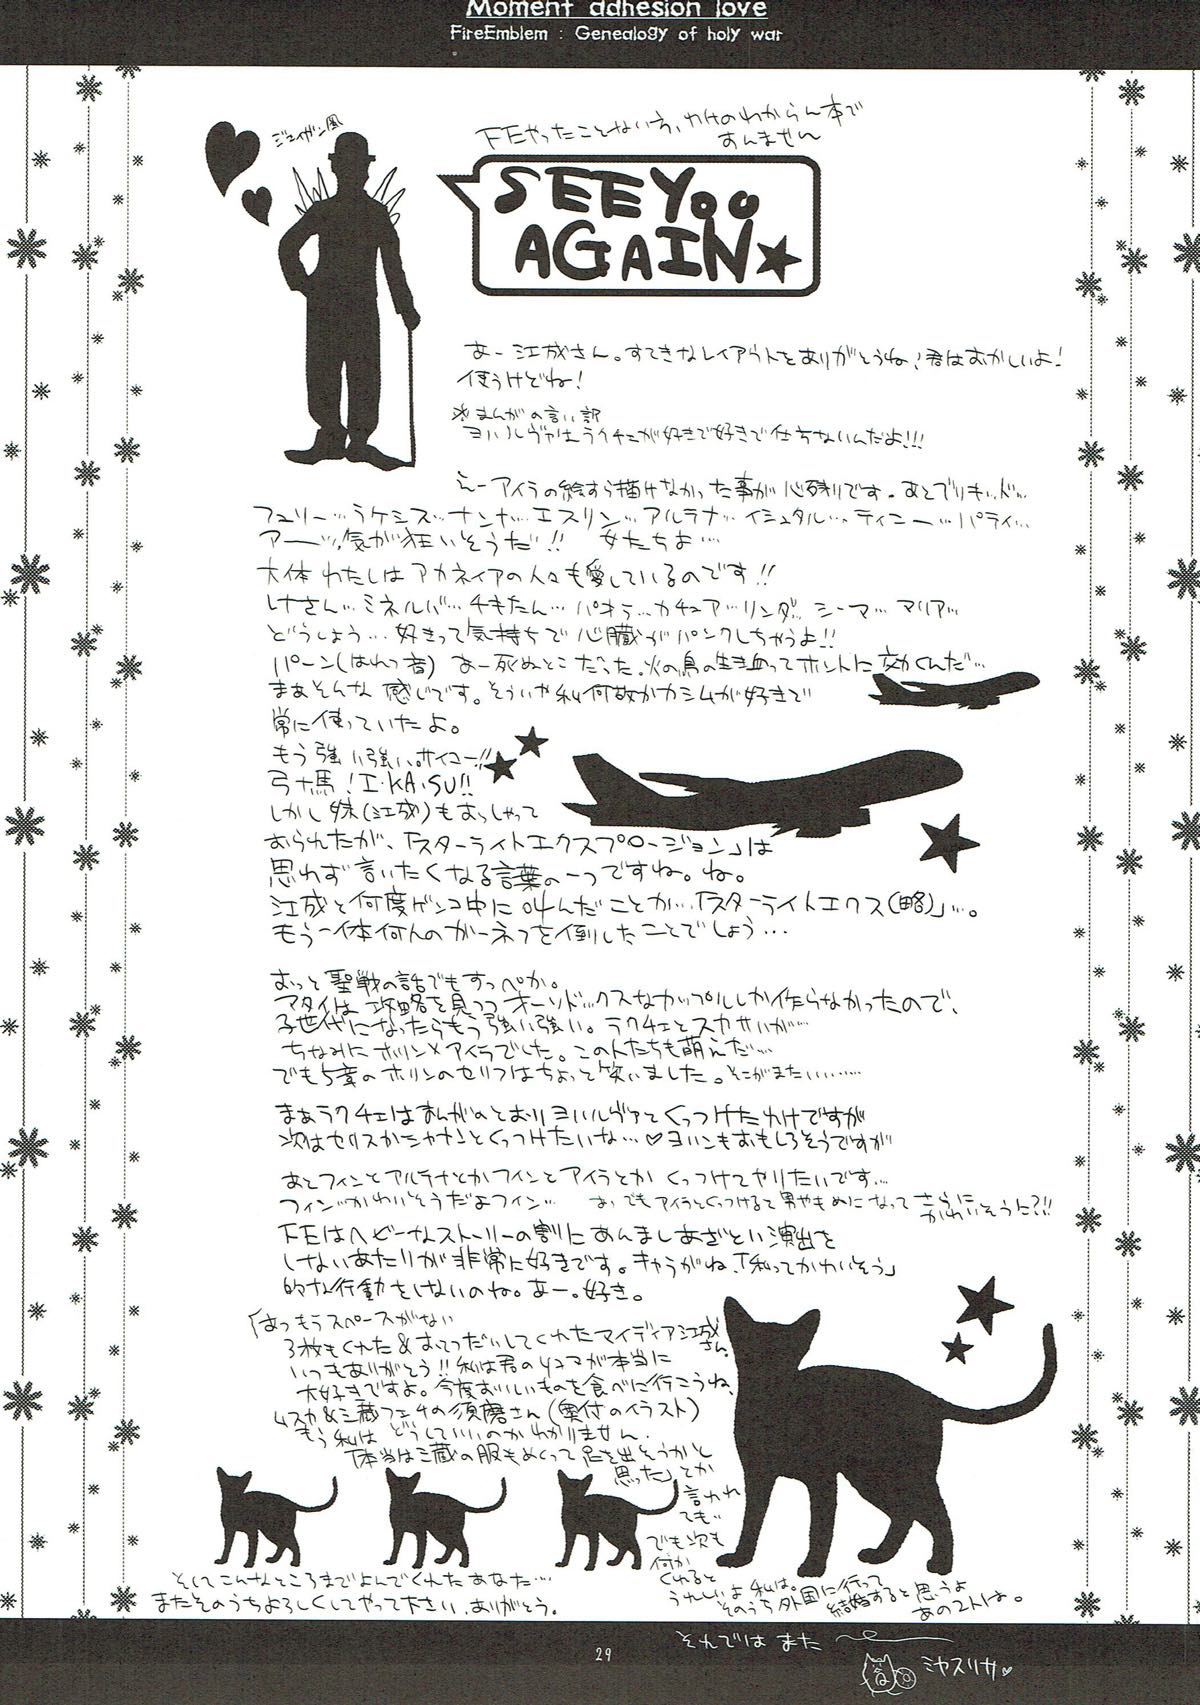 Moment adhesion love
FireEmblem : Genealogy of holy war
ジェイガン風
FEやったことない方、わけのわからん本で
あんません
SEE YOU
AGAIN★
あー江成さん。すてきなレイアウトをありがとうね!君はおかしいよ!
使うけどね!
*まんがの言い訳
ヨハルヴァはラクチェが好きで好きで仕方ないんだよ!!!
えーアイラの絵すら描けなかった事が心残りです。あとブリギッド…
フュリー…ラケシス…ナンナ…エスリン…アルテナ…イシュタル…ティニー…パティ…
アーッ、気が狂いそうだ!! 女たちよ…
大体わたしはアカネイアの人々も愛しているのです!!
レナさん…ミネルバ…チキたん…パオラ…カチュア…リンダ…シーマ…マリア…
どうしよう…好きって気持ちで心臓がパンクしちゃうよ!!
パーン(はれつ音) あー死ぬとこだった。火の鳥の生き血ってホントに効くんだ…
まあそんな感じです。そういや私何故かカシムが好きで
常に使っていたよ。
もう強い強い。サイコー!!
弓+馬!I・KA・SU!!
しかし妹(江成)もおっしゃって
おられたが、「スターライトエクスプロージョン」は
思わず言いたくなる言葉の一つですね。ね。
江成と何度ゲンコ中に叫んだことか…「スターライトエクス(略)」…。
もう一体何人のガーネフを倒したことでしょう…
おっと聖戦の話でもすっぺか。
アタイは攻略を見つつオーソドックスなカップルしか作らなかったので、
子世代になったらもう強い強い。ラクチェとスカサハが…
ちなみにホリン×アイラでした。この人たちも萌えだ…
でも5章のホリンのセリフはちょっと笑いました。そこがまたいい……
まあラクチェはまんがのとおりヨハルヴァとくっつけたわけですが
次はセリスかシャナンとくっつけたいな…♡ヨハンもおもしろそうですが
あとフィンとアルテナとかフィンとアイラとかくっつけてやりたいです…
フィン…かわいそうだよフィン… あっでもアイラとくっつけると男やもめになってさらに
かわいそうに?!!
FEはヘビーなストーリーの割にあんましあざとい演出を
しないあたりが非常に好きです。キャラがね、「私ってかわいそう」
的な行動をしないのね。あー。好き。
はっもうスペースがない
3枚もくれた&おてつだいしてくれたマイディア江成
さん。
いつもありがとう!!私は君の4コマが本当に
大好きですよ。今度おいしいものを食べに行こうね、
ムスカ&三蔵フェチの須磨さん(奥付のイラスト)
もう私はどうしていいのかわかりません.
「本当は三蔵の服もめくって足を出そうかと
思った」とか
言われ
ても…
でも次も
何か
くれると
うれしいよ私は。
そのうち外国に行って
結婚すると思うよ
あの2人は。
そしてこんなところまでよんでくれたあなた…
またそのうちよろしくしてやって下さい、ありがとう。
それではまた
29
ミヤスリサ♥